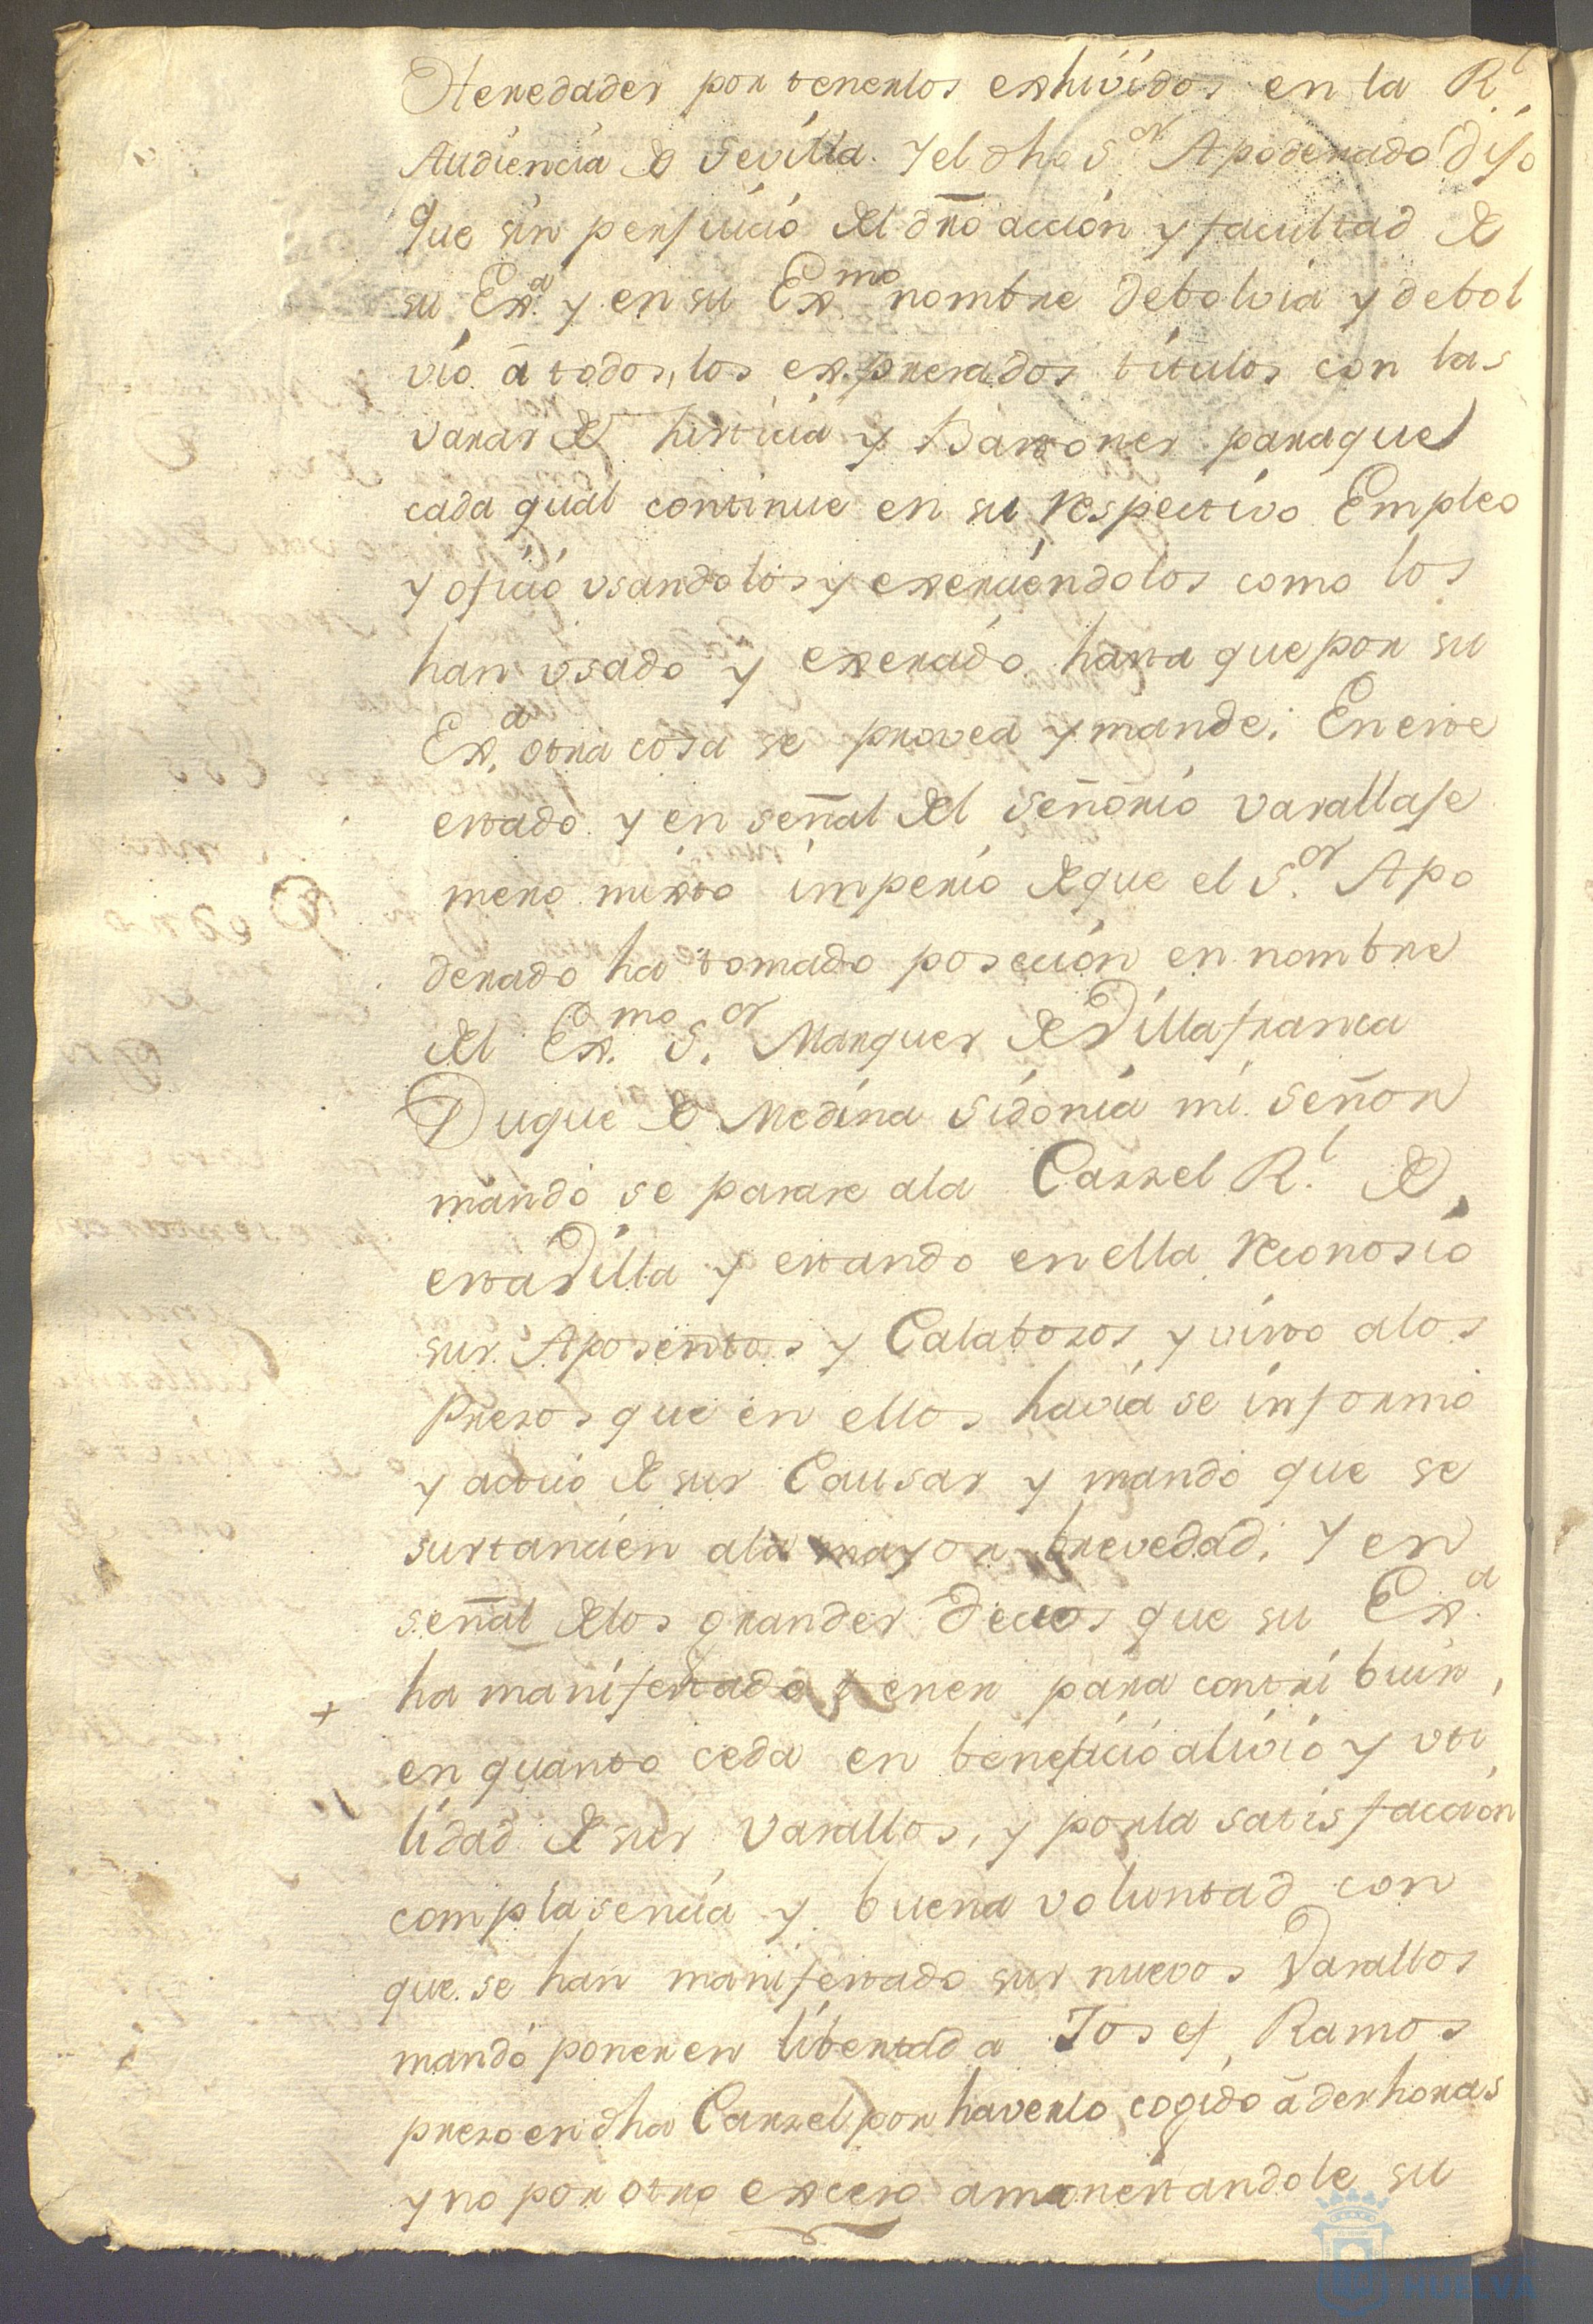 Heredades por tenerlos exhividos en la R.l
Audiencia de Sevilla. Y el dho S.or Apoderado dijo
Que sin perjuicio del dro acción y facultad de
su Ex.a y en su Ex.mo nombre debolvia y debol
vio â todos, los expresados titulos con las
varas de Justicia y Bastones para que
cada qual continue en su respectivo Empleo
y oficio vsandolos y exerciendolos como los
han vsado y exercido hasta que por su
Ex.a otra cosa se provea y mande: En este
estado y en señal del señorio vasallaje
mero mixto imperio de que el S.or Apo
derado ha tomado poseción en nombre
del Ex.mo S.or Marques de Villafranca
Duque de Medina Sidonia mi señor
mandó se pasase a la Carzel R.l de
esta Villa y estando en ella reconosió
sus Aposentos y Calabosos y visto a los
Presos que en ellos havia se informó
y actuó de sus Causas y mandó que se
sustancien a la mayor brevedad; Y en
señal de los grandes deceos que su Ex.a
+ ha manifestado tener para contribuir,
en quanto ceda en beneficio alivio y vti
lidad de sus vasallos, y por la satisfacción
complasencia y buena voluntad con
que se han manifestado sus nuevos Vasallos
mandó poner en libertad a Josef Ramos
preso en dha Carzel por haverlo cogido â deshoras
y no por otro exceso amonestandole su
HUELVA